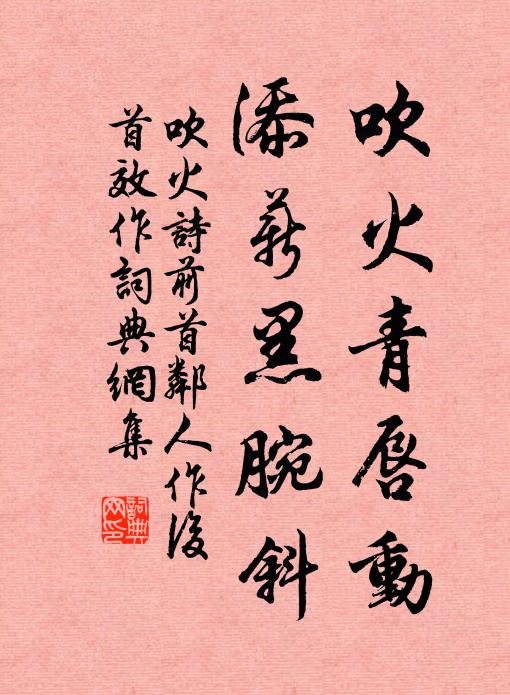 吹火青唇動
添薪黑腕斜
吹火詩前首鄰人作後
首效作詞典網集
詞典
网印